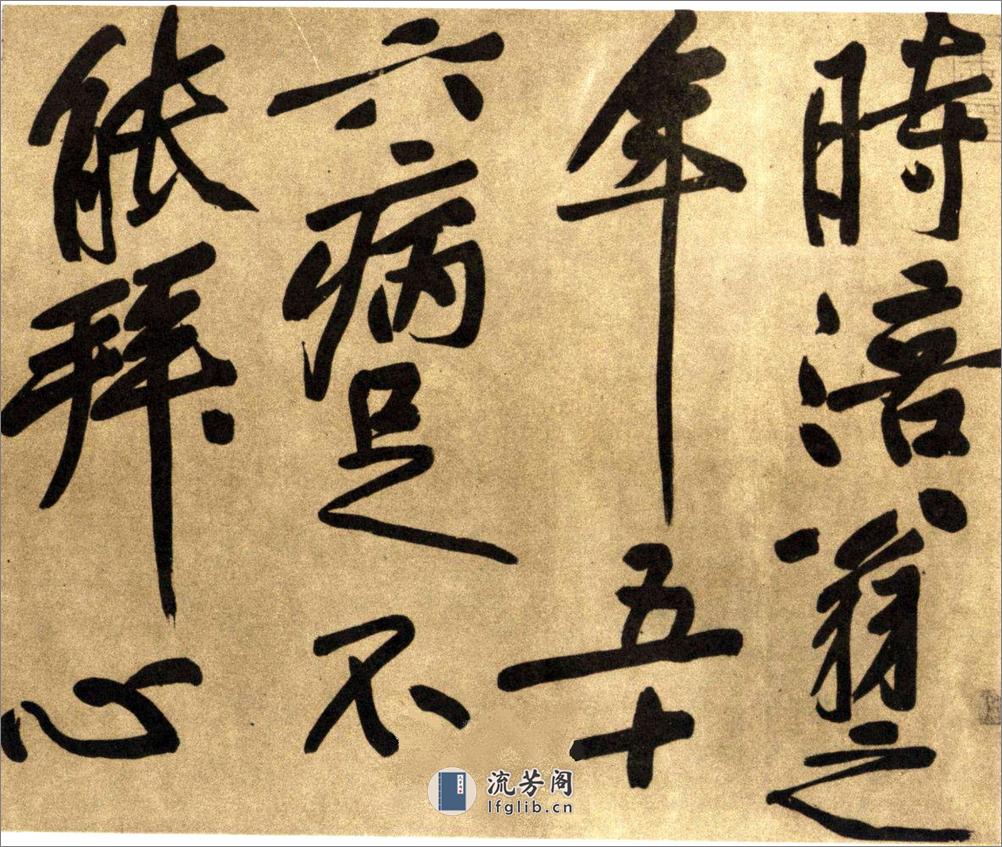 時涪翁之
年五十
六病足不
能拜心
流芳阁
lfglib.cn